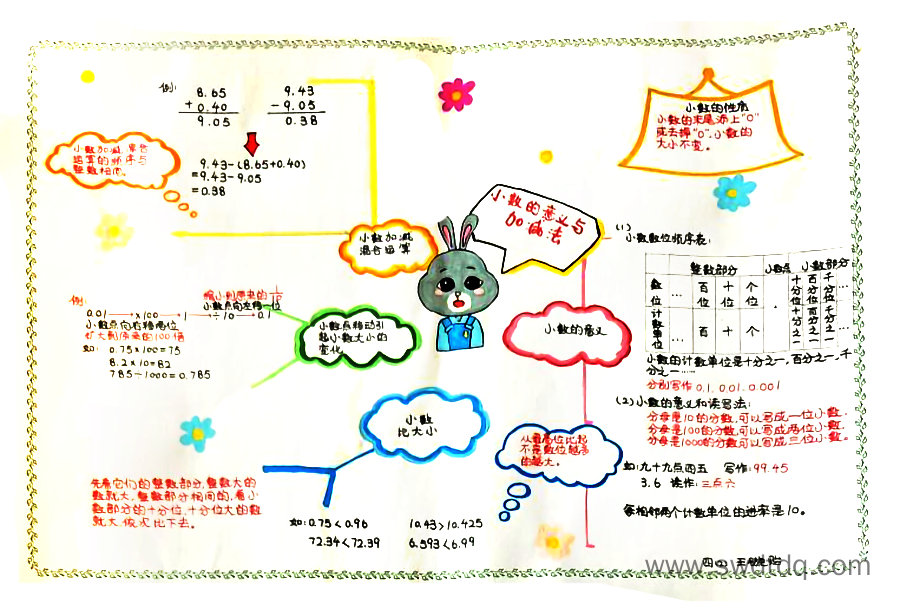 小数的意义与
加减法
例:
8.65
+ 0.40
9.05
9.43
- 9.05
0.38
9.43-(8.65+0.40)
=9.43-9.05
=0.38
小数加减,单合
运算的顺序与
整数相同。
小数加减
混合运算
小数的性质
小数的末尾添上"0"
或去掉"0",小数的
大小不变。
(1)
小数数位顺序表:
整数部分 小数点 小数部分
数位 … 百位 十位 个位 . 十分位 百分位 千分位 …
计数单位 … 百 十 个 十分之一 百分之一 千分之一 …
小数的计数单位是十分之一,百分之一,千
分之一……
分别写作0.1,0.01,0.001
(2)小数的意义和读写法:
分母是10的分数,可以写成一位小数.
分母是100的分数,可以写成两位小数,
分母是1000的分数可以写成三位小数。
如:九十九点四五 写作:99.45
3.6 读作:三点六
每相邻两个计数单位的进率是10。
小数的意义
例:
缩小到原来的1/10
小数点向左移一位
0.01→×100→1
1→÷10→0.1
小数点向右移两位
扩大到原来的100倍
如: 0.75×100=75
8.2×10=82
785÷1000=0.785
小数点移动引
起小数大小的
变化
小数
比大小
从最高位比起
不是数位越多
的越大。
先看它们的整数部分,整数大的
数就大,整数部分相同的,看小
数部分的十分位,十分位大的数
就大,依次比下去。
如:0.75<0.96 10.43>10.425
72.34<72.39 6.593<6.99
四(2) 王
www.swdtdq.com